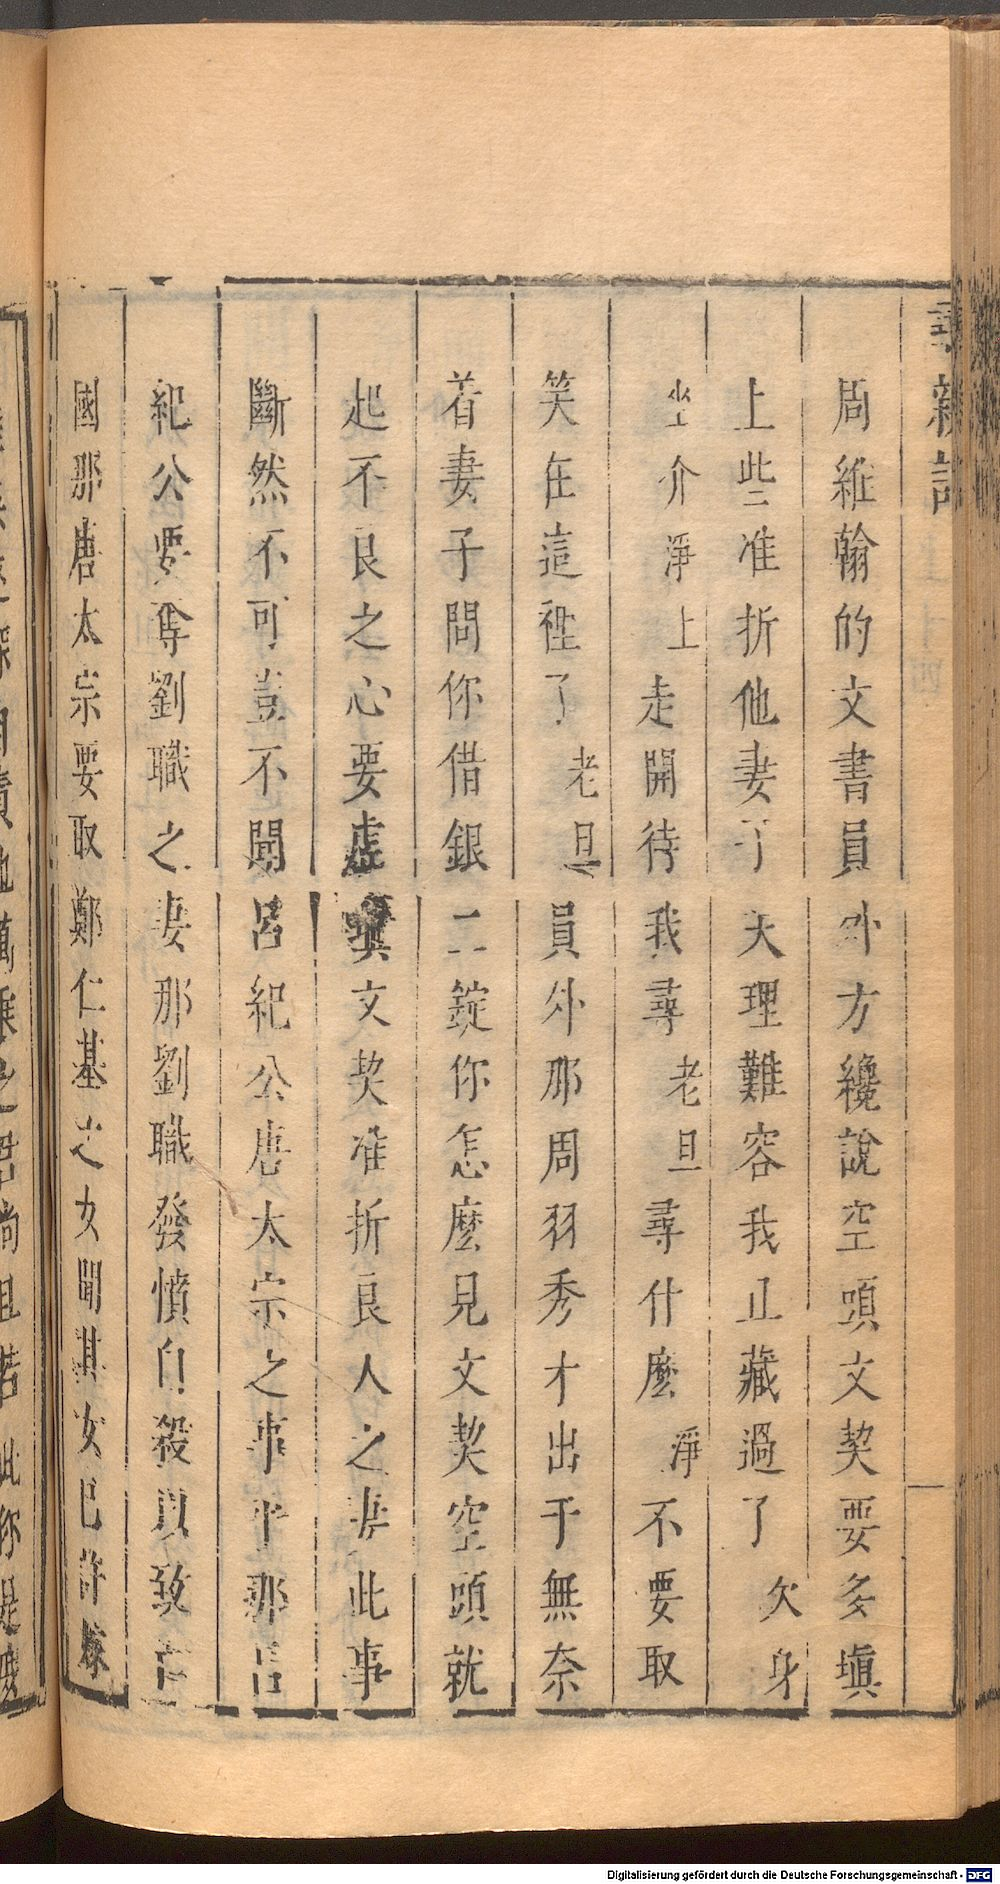 尋親記
周維翰的文書員外方纔說空頭文契要多塡
上些准折他妻了天理難容我止藏過了欠身
坐介淨上走開待我尋老旦尋什麼淨不要取
笑在這裡了老旦員外那周羽秀才出于無奈
着妻子問你借銀二錠你怎麼見文契空頭就
起不良之心要虛塡文契准折良人之妻此事
斷然不可豈不聞呂紀公唐太宗之事乎那呂
紀公要奪劉職之妻那劉職發憤自殺以致亡
國那唐太宗要取鄭仁基之女聞其女已許嫁
Digitalisierung gefördert durch die Deutsche Forschungsgemeinschaft - DFG